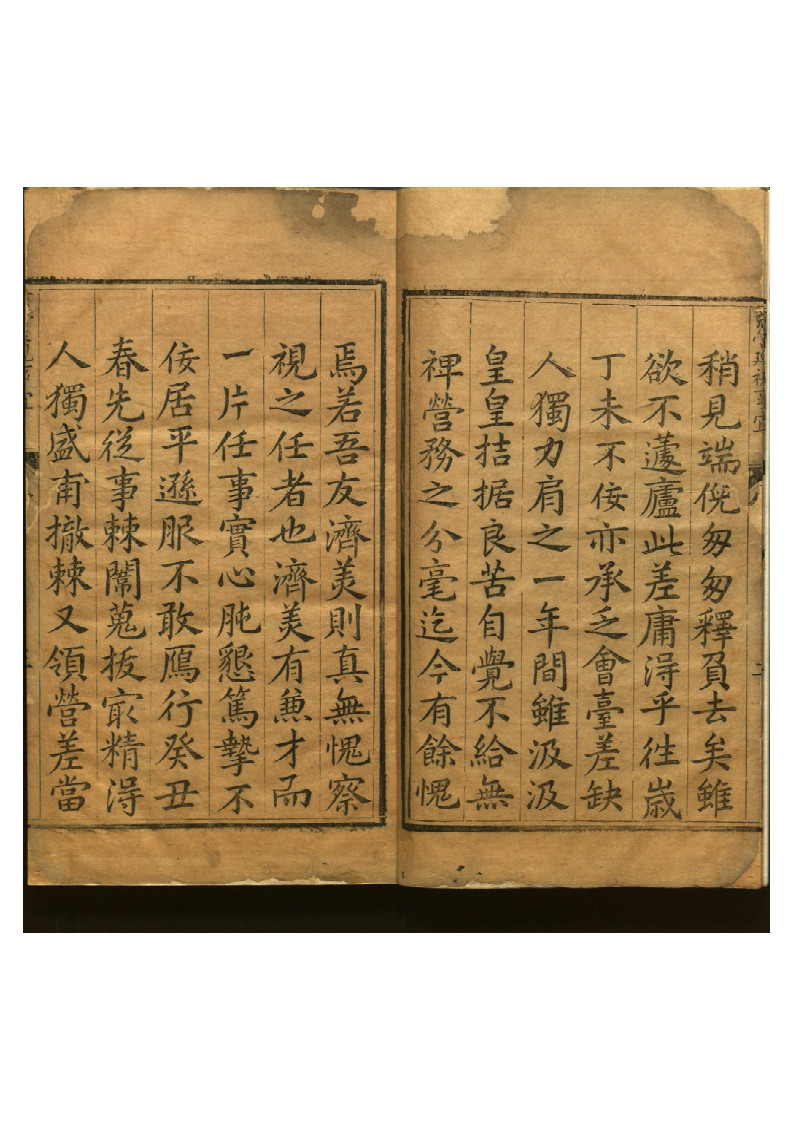 稍見端倪匆匆釋負去矣雖
欲不蘧廬此差庸淂乎徃歲
丁未不佞亦承乏會臺差缺
人獨力肩之一年間雖汲汲
皇皇拮据良苦自覺不給無
裨營務之分毫迄今有餘愧
焉若吾友濟美則真無愧察
視之任者也濟美有兼才而
一片任事實心肫懇篤摯不
佞居平遜服不敢鴈行癸丑
春先從事棘闈蒐拔㝡精淂
人獨盛甫撤棘又領營差當